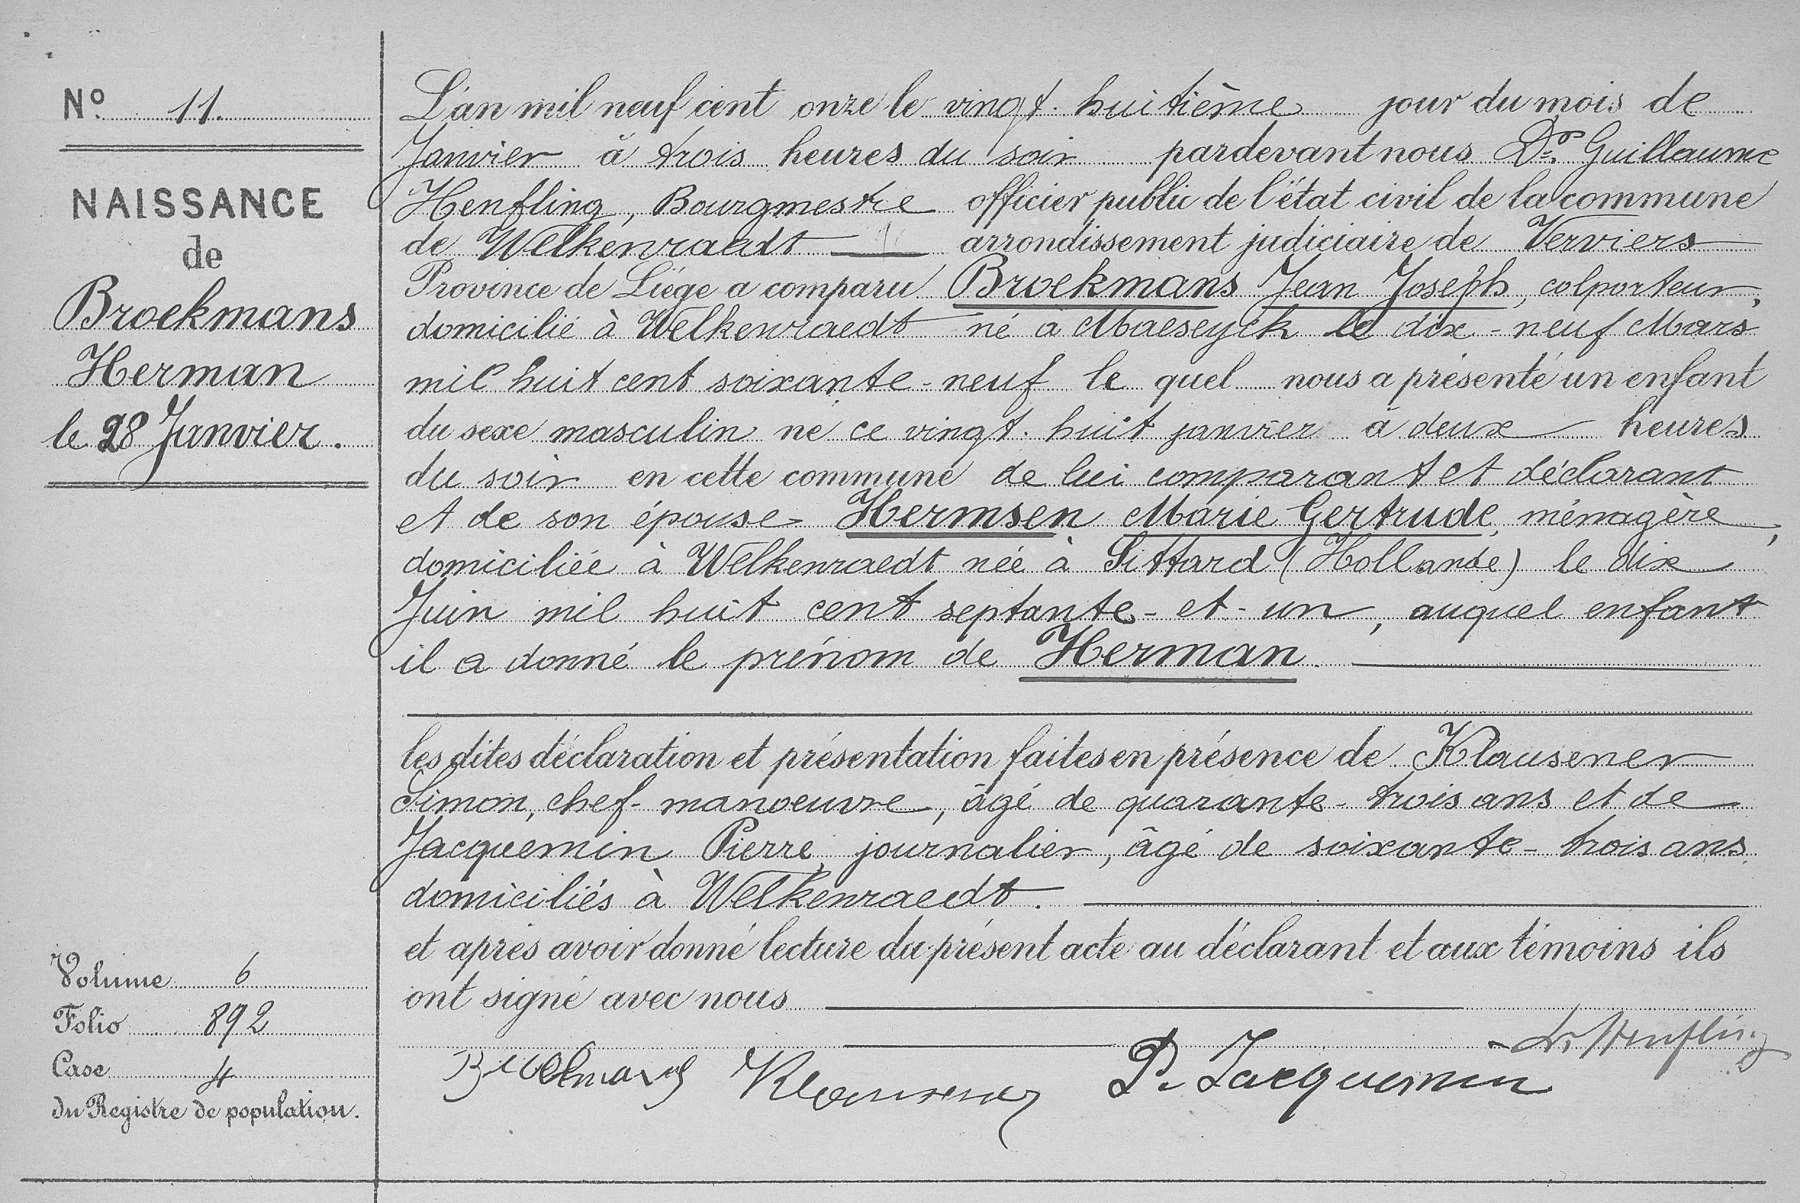 N° 11.
NAISSANCE
de
Broekmans
Herman
le 28 Janvier.
L'an mil neuf cent onze le vingt-huitième jour du mois de
Janvier à trois heures du soir pardevant nous Dr Guillaume
Henfling, Bourgmestre officier public de l'état civil de la commune
de Welkenraedt arrondissement judiciaire de Verviers
Province de Liége a comparu Broekmans Jean Joseph, colporteur,
domicilié à Welkenraedt né à Maeseyck le dix-neuf Mars
mil huit cent soixante-neuf le quel nous a présenté un enfant
du sexe masculin né ce vingt-huit janvier à deux heures
du soir en cette commune de lui comparant et déclarant
et de son épouse Hermsen Marie Gertrude, ménagère,
domiciliée à Welkenraedt née à Sittard (Hollande) le dix
Juin mil huit cent septante-et-un, auquel enfant
il a donné le prénom de Herman.
les dites déclaration et présentation faites en présence de Klausener
Simon, chef-manoeuvre, âgé de quarante-trois ans et de
Jacquemin Pierre, journalier, âgé de soixante-trois ans
domiciliés à Welkenraedt.
et après avoir donné lecture du présent acte au déclarant et aux témoins ils
ont signé avec nous
Broekmans Klausener P. Jacquemin Dr Henfling
Volume 6
Folio 892
Case 4
du Registre de population.